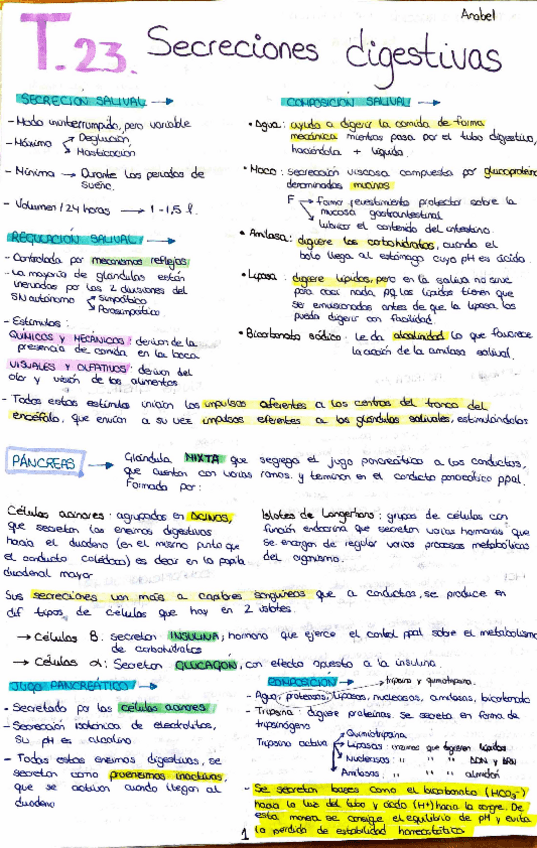 Anabel
T.23. Secreciones digestivas
SECRECIÓN SALIVAL →
- Modo ininterrumpido, pero variable
- Máximo
Deglución
Masticación
- Mínimo → Durante los periodos de
sueño.
- Volumen / 24 horas → 1-1,5 l.
REGULACIÓN SALIVAL →
- Controlada por mecanismos reflejos
- La mayoría de glándulas están
inervadas por las 2 divisiones del
SN autónomo
Simpático
Parasimpático
- Estímulos:
QUÍMICOS Y MECÁNICOS: derivan de la
presencia de comida en la boca
VISUALES Y OLFATIVOS: derivan del
olor y visión de los alimentos
COMPOSICIÓN SALIVAL →
• Agua: ayuda a digerir la comida de forma
mecánica mientras pasa por el tubo digestivo,
haciéndola + líquida.
• Moco: secreción viscosa compuesta por glucoproteínas
denominadas mucinas
F
forma revestimiento protector sobre la
mucosa gastrointestinal
lubricar el contenido del intestino.
• Amilasa: digiere los carbohidratos, cuando el
bolo llega al estómago cuyo pH es ácido.
• Lipasa: digiere lípidos, pero en la saliva no sirve
para casi nada, pq los lípidos tienen que
ser emulsionados antes de que la lipasa los
pueda digerir con facilidad.
• Bicarbonato sódico: Le da alcalinidad lo que favorece
la acción de la amilasa salival.
- Todos estos estímulos inician los impulsos aferentes a los centros del tronco del
encéfalo, que envían a su vez impulsos eferentes a las glándulas salivales, estimulándolas
PÁNCREAS → Glándula MIXTA que segrega el jugo pancreático a los conductos,
que cuentan con varias ramas, y terminan en el conducto pancreático ppal.
Formada por:
Células acinares: agrupadas en ACINOS,
que secretan las enzimas digestivas
hacia el duodeno (en el mismo punto que
el conducto colédoco) es decir en la papila
duodenal mayor
Islotes de Langerhans: grupos de células con
función endocrina que secretan varias hormonas que
se encargan de regular varios procesos metabólicos
del organismo.
Sus secreciones van más a capilares sanguíneos que a conductos, se produce en
dif tipos de células que hay en 2 islotes.
→ Células β: secretan INSULINA, hormona que ejerce el control ppal sobre el metabolismo
de carbohidratos
→ Células α: Secretan GLUCAGÓN, con efecto opuesto a la insulina.
JUGO PANCREÁTICO →
- Secretado por las células acinares
- Secreción isotónica de electrolitos,
su pH es alcalino
- Todas estas enzimas digestivas, se
secretan como proenzimas inactivas,
que se activan cuando llegan al
duodeno
COMPOSICIÓN →
tripsina y quimotripsina.
- Agua, proteasas, lipasas, nucleasas, amilasas, bicarbonato
- Tripsina: digiere proteínas. Se secreta en forma de
tripsinógeno
Tripsina activa
Quimotripsina
Lipasas: enzimas que digieren lípidos
Nucleasas: " " ADN y ARN
Amilasas: " " almidón
- Se secretan bases como el bicarbonato (HCO3-)
hacia la luz del tubo y ácido (H+) hacia la sangre. De
esta manera se consigue el equilibrio de pH y evita
la pérdida de estabilidad homeostática
1